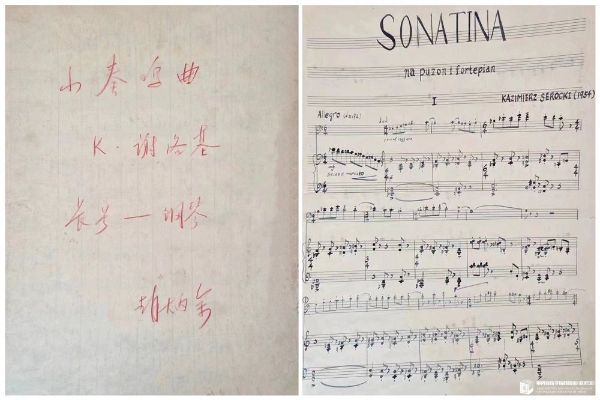 小奏鸣曲
K·谢洛基
长号—钢琴
SONATINA
na puzon i fortepian
I
KAZIMIERZ SEROCKI (1954)
Allegro